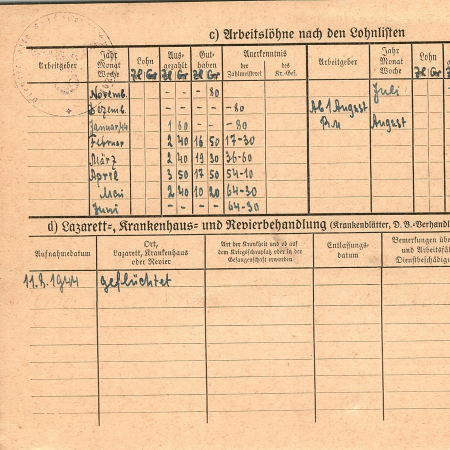 c) Arbeitslöhne nach den Lohnlisten
Arbeitgeber Jahr Monat Woche Lohn Zl Gr Aus- gezahlt Zl Gr Gut- haben Zl Gr Anerkenntnis der Zahlmeisterei des Kr.-Gef. Arbeitgeber Jahr Monat Woche Lohn Zl Gr
Novemb. - - - 80 Juli
Dezemb. - - - - - 80 Ab 1 August
Januar 44 1 60 - - - 80 August
Februar 2 40 16 50 17-30
März 2 40 19 30 36-60
April 3 50 17 50 54-10
Mai 2 40 10 20 64-30
Juni - - - - 64-30
d) Lazarett-, Krankenhaus- und Revierbehandlung (Krankenblätter, D. B.-Verhandl
Aufnahmedatum Ort, Lazarett, Krankenhaus oder Revier Art der Krankheit und ob auf dem Kriegsschauplatz oder in der Gefangenschaft erworben Entlassungs- datum Bemerkungen übe und Arbeitsfäl Dienstbeschädig
11.8.1944 geflüchtet